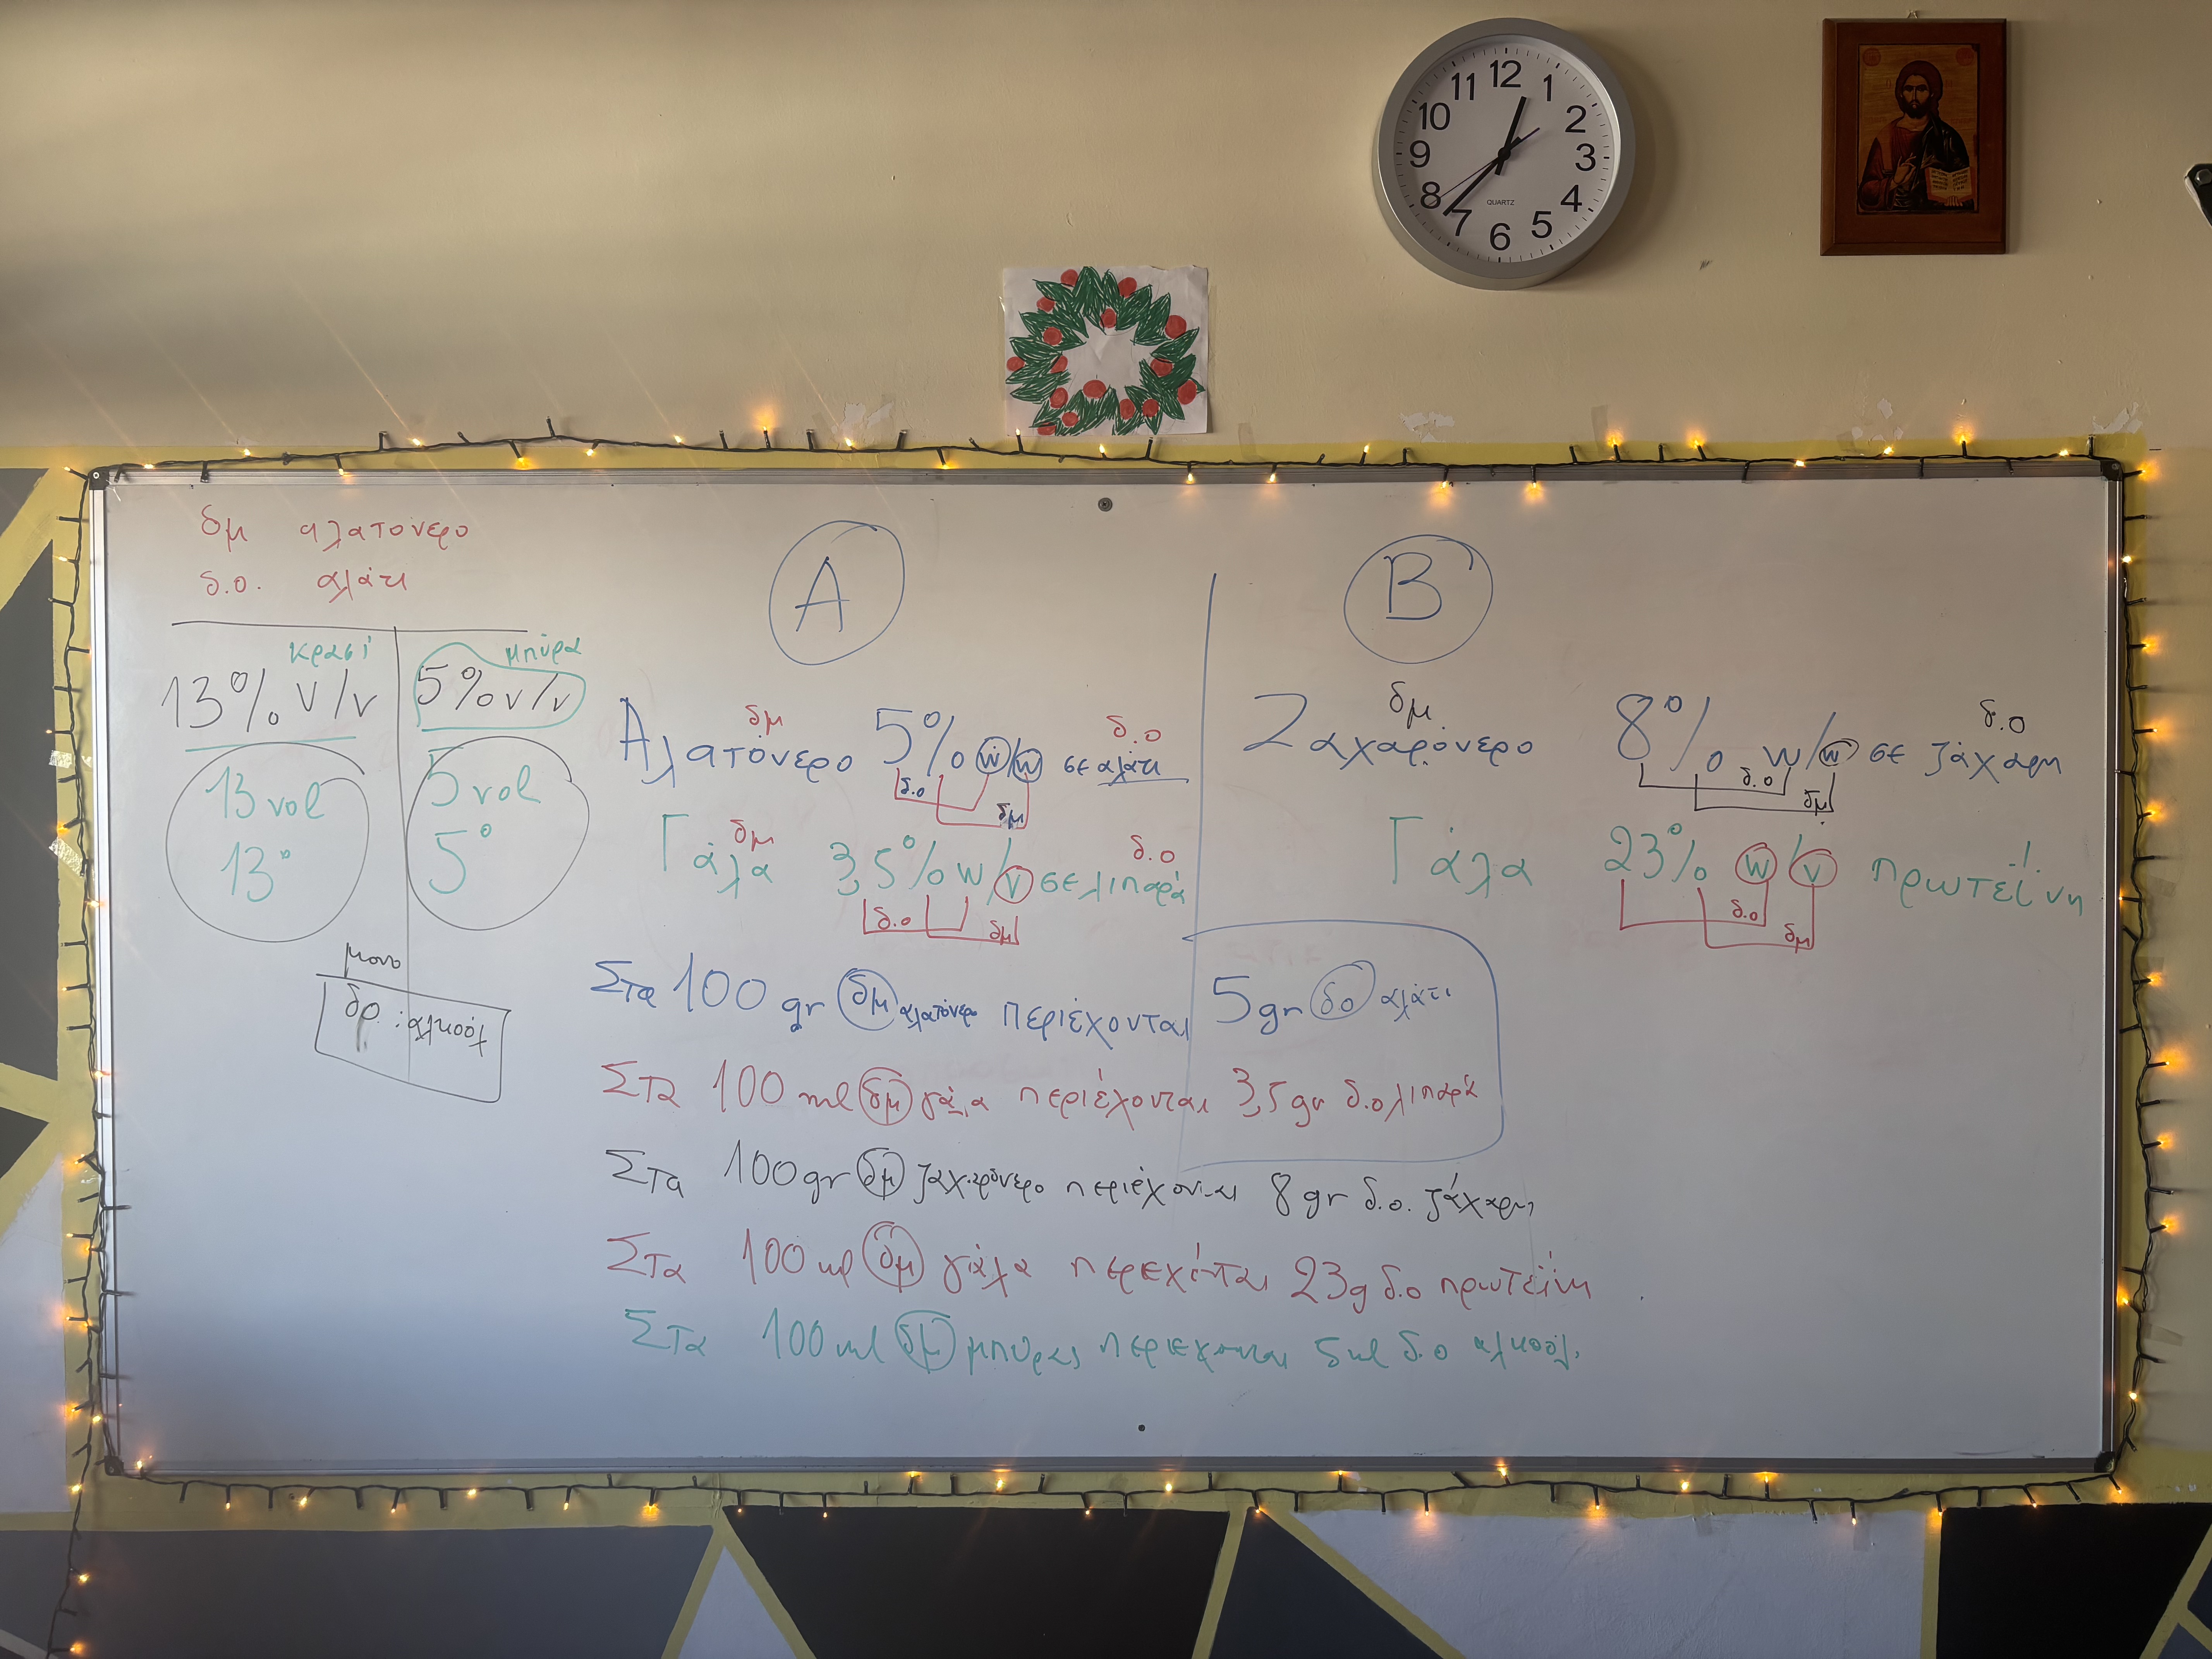 12
11 1
10 2
9 3
8 4
7 5
6
QUARTZ
δμ αλατόνερο
δ.ο. αλάτι
κρασί
13% v/v
13 vol
13°
μπύρα
5% v/v
5 vol
5°
μονο
δ.ο. : αλκοόλ
Α
δμ δ.ο
Αλατόνερο 5% w/w σε αλάτι
δ.ο
δμ
δμ δ.ο
Γάλα 3,5% w/v σε λιπαρά
δ.ο
δμ
Β
δμ. δ.ο
Ζαχαρόνερο 8% w/w σε ζάχαρη
δ.ο
δμ
Γάλα 23% w/v πρωτεΐνη
δ.ο
δμ
Στα 100 gr δμ αλατόνερο περιέχονται 5 gr δο αλάτι
Στα 100 ml δμ γάλα περιέχονται 3,5 gr δ.ο λιπαρά
Στα 100 gr δμ ζαχαρόνερο περιέχονται 8 gr δ.ο. ζάχαρη
Στα 100 ml δμ γάλα περεχόνται 23g δ.ο πρωτεΐνη
Στα 100 ml δμ μπύρας περιεχονται 5ml δ.ο αλκοόλ